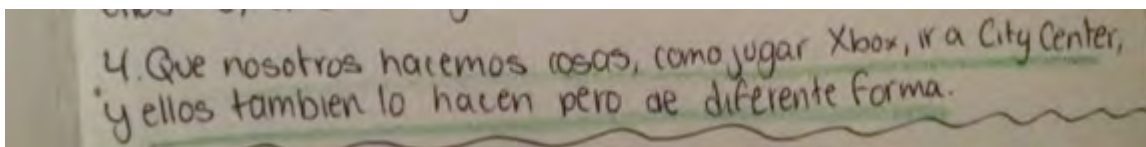 4. Que nosotros hacemos cosas, como jugar Xbox, ir a City Center,
y ellos tambien lo hacen pero de diferente forma.